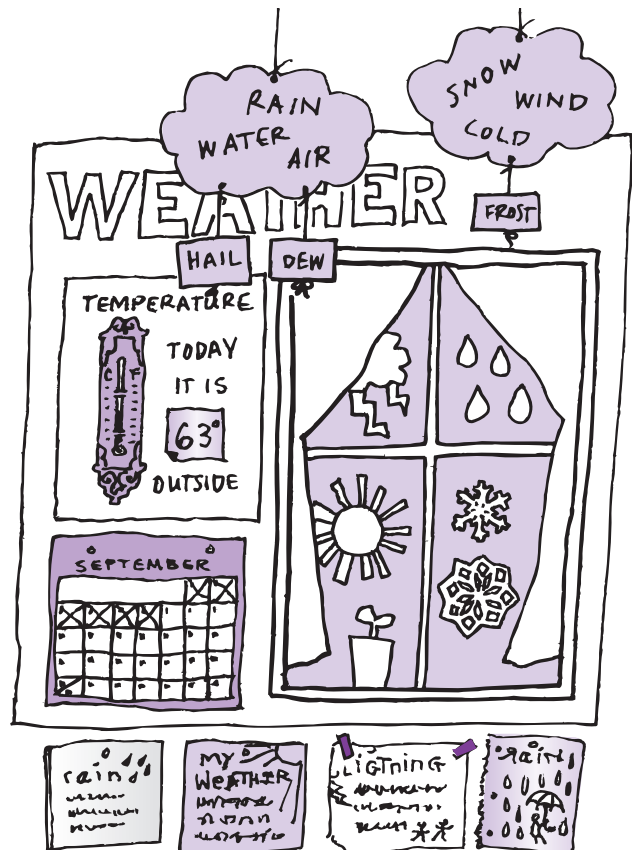 RAIN
WATER
AIR
SNOW
WIND
COLD
WEATHER
FROST
HAIL
DEW
TEMPERATURE
C F
TODAY
IT IS
63°
OUTSIDE
SEPTEMBER
rain
My
WEATHER
LIGTNING
RAIN